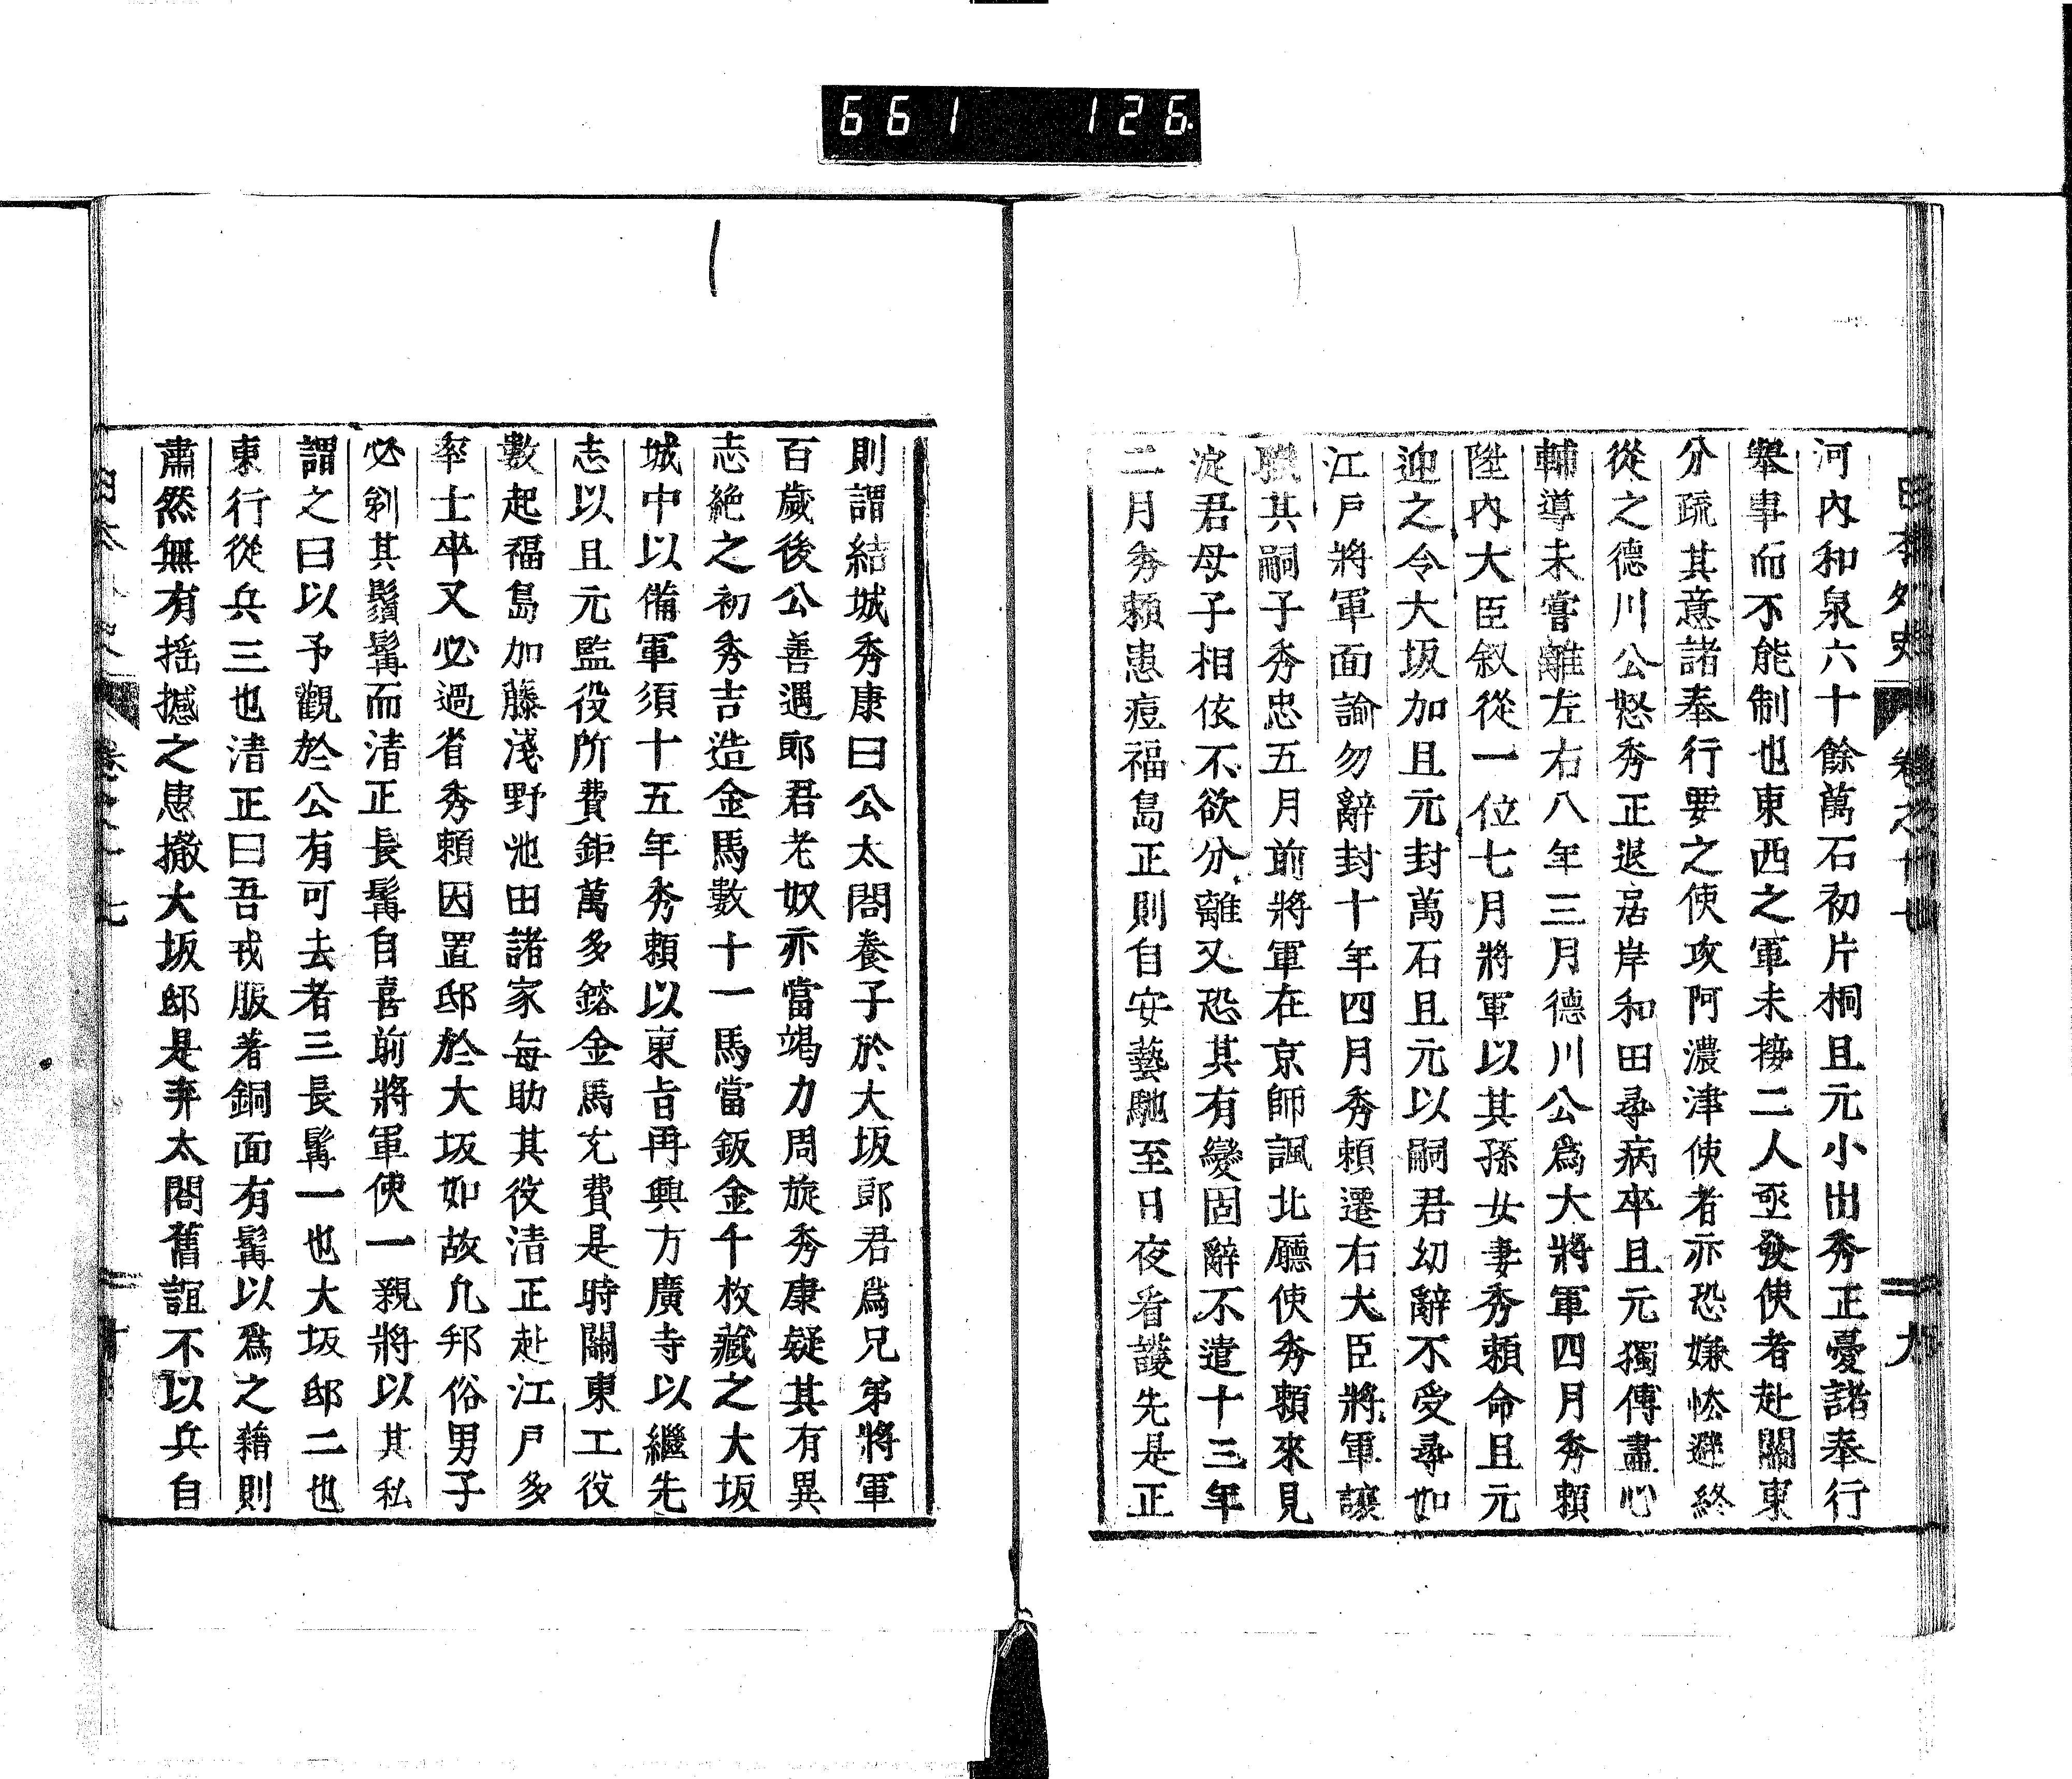 661 126
日本外史 卷之十七 九
河內和泉六十餘萬石初片桐且元小出秀正憂諸奉行
舉事而不能制也東西之軍未接二人亟發使者赴關東
分疏其意諸奉行要之使攻阿濃津使者亦恐嫌恠遲終
從之德川公怒秀正退居岸和田尋病卒且元獨傳盡心
輔導未嘗離左右八年三月德川公爲大將軍四月秀賴
陞內大臣叙從一位七月將軍以其孫女妻秀賴命且元
迎之令大坂加且元封萬石且元以嗣君幼辭不受尋如
江戶將軍面諭勿辭封十年四月秀賴遷右大臣將軍讓
職其嗣子秀忠五月前將軍在京師諷北廳使秀賴來見
淀君母子相依不欲分離又恐其有變固辭不遣十三年
二月秀賴患痘福島正則自安藝馳至日夜看護先是正
則謂結城秀康曰公太閤養子於大坂郎君爲兄弟將軍
百歲後公善遇郎君老奴亦當竭力周旋秀康疑其有異
志絶之初秀吉造金馬數十一馬當鈑金千枚藏之大坂
城中以備軍須十五年秀賴以東旨再興方廣寺以繼先
志以且元監役所費鉅萬多鎔金馬充費是時關東工役
數起福島加藤淺野池田諸家每助其役清正赴江戶多
率士卒又必過省秀賴因置邸於大坂如故凡邦俗男子
必剃其鬚髯而清正長髯自喜前將軍使一親將以其私
謂之曰以予觀於公有可去者三長髯一也大坂邸二也
東行從兵三也清正曰吾戎服著銅面有髯以爲之藉則
肅然無有搖撼之患撤大坂邸是弃太閤舊誼不以兵自
日本 史 卷之十七